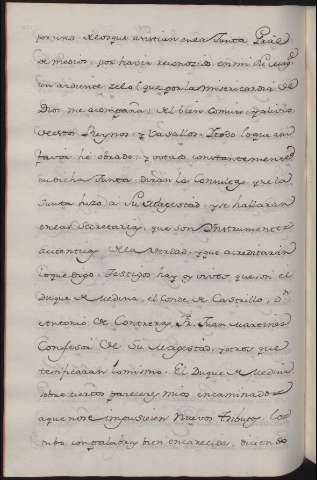 por uno de los que asistian en la Junta Gral
de medios, por haver reconozido en mi Su Magd
un ardiente zelo (que por la misericordia de
Dios me acompaña) al bien comun, y alivio
de estos Reynos, y Vasallos. Todo lo que an
tes he obrado, y votado constantemente
en dicha Junta dirán la Consultas que la
Junta hizo a Su Magestad, y se hallarán
en las Secretarias, que son Instrumentos
autenticos de la verdad, y que acreditarán
lo que digo. Testigos hay oy vivos, que son el
Duque de Medina, el Conde de Castrillo, Dn
Antonio de Contreras, Fr. Juan Martinez
Confesor de Su Magestad, y otros que
testificaran lo mismo. El Duque de Medina
sobre ciertos pareceres mios encaminados
a que no se impusiesen Nuevos tributos, los
con palabras bien encarecidas, diciendo